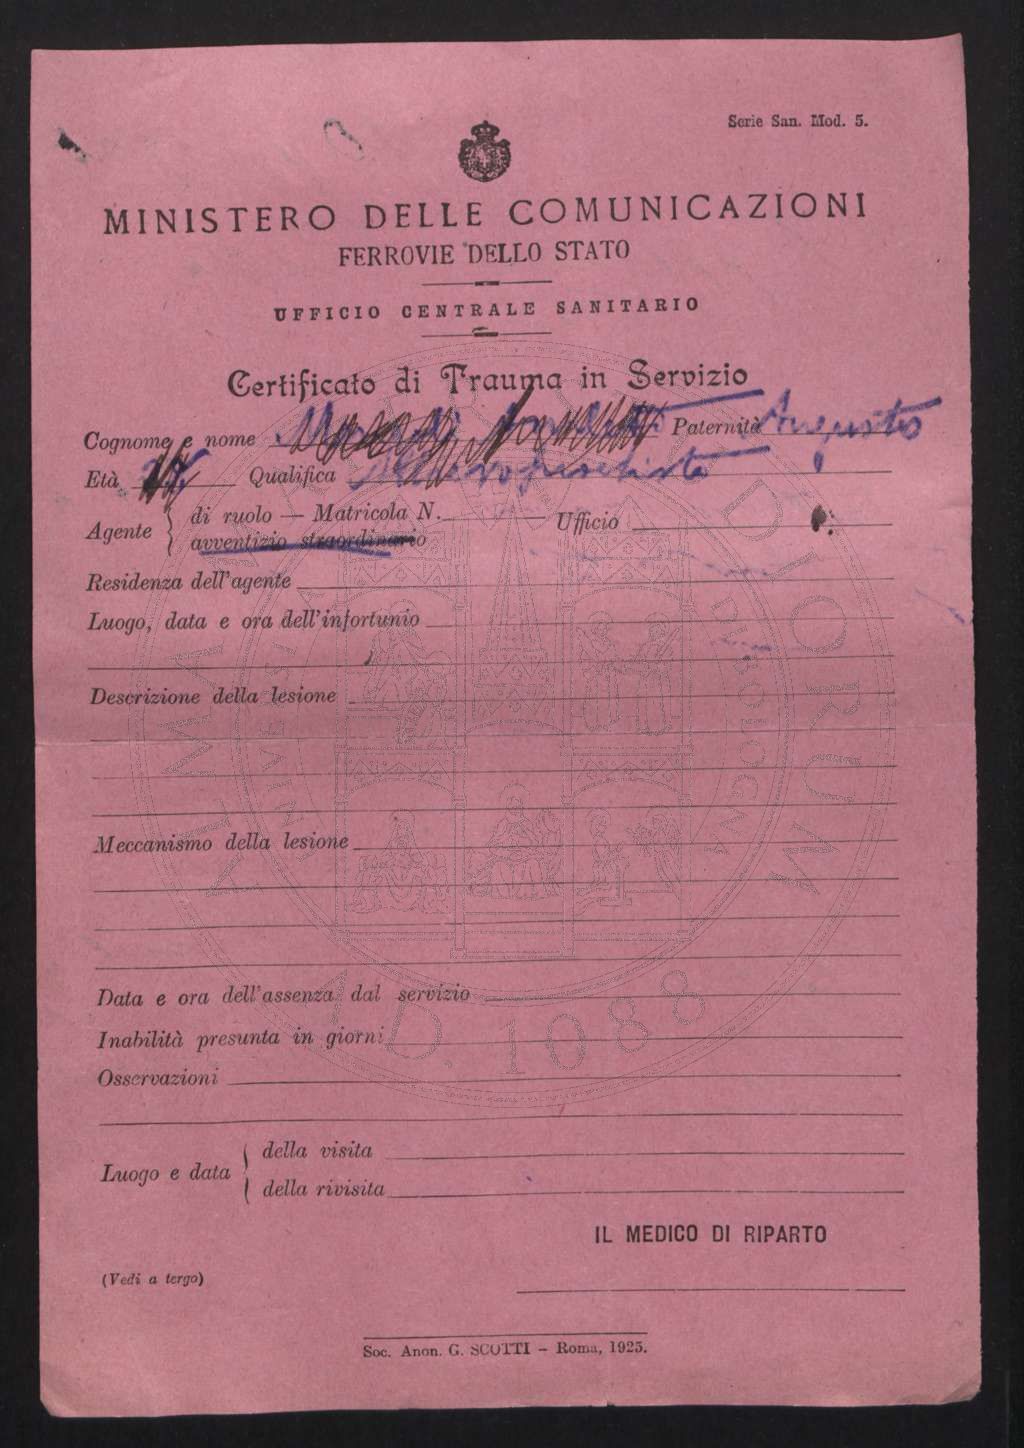 Serie San. Mod. 5.
MINISTERO DELLE COMUNICAZIONI
FERROVIE DELLO STATO
UFFICIO CENTRALE SANITARIO
Certificato di Trauma in Servizio
Cognome e nome Paternità Augusto
Età Qualifica
Agente { di ruolo — Matricola N. Ufficio
avventizio straordinario
Residenza dell'agente
Luogo, data e ora dell'infortunio
Descrizione della lesione
Meccanismo della lesione
Data e ora dell'assenza dal servizio
Inabilità presunta in giorni
Osservazioni
Luogo e data { della visita
della rivisita
IL MEDICO DI RIPARTO
(Vedi a tergo)
Soc. Anon. G. SCOTTI – Roma, 1925.
ALMA MATER STUDIORUM
UNIVERSITÀ DI BOLOGNA
A.D. 1088